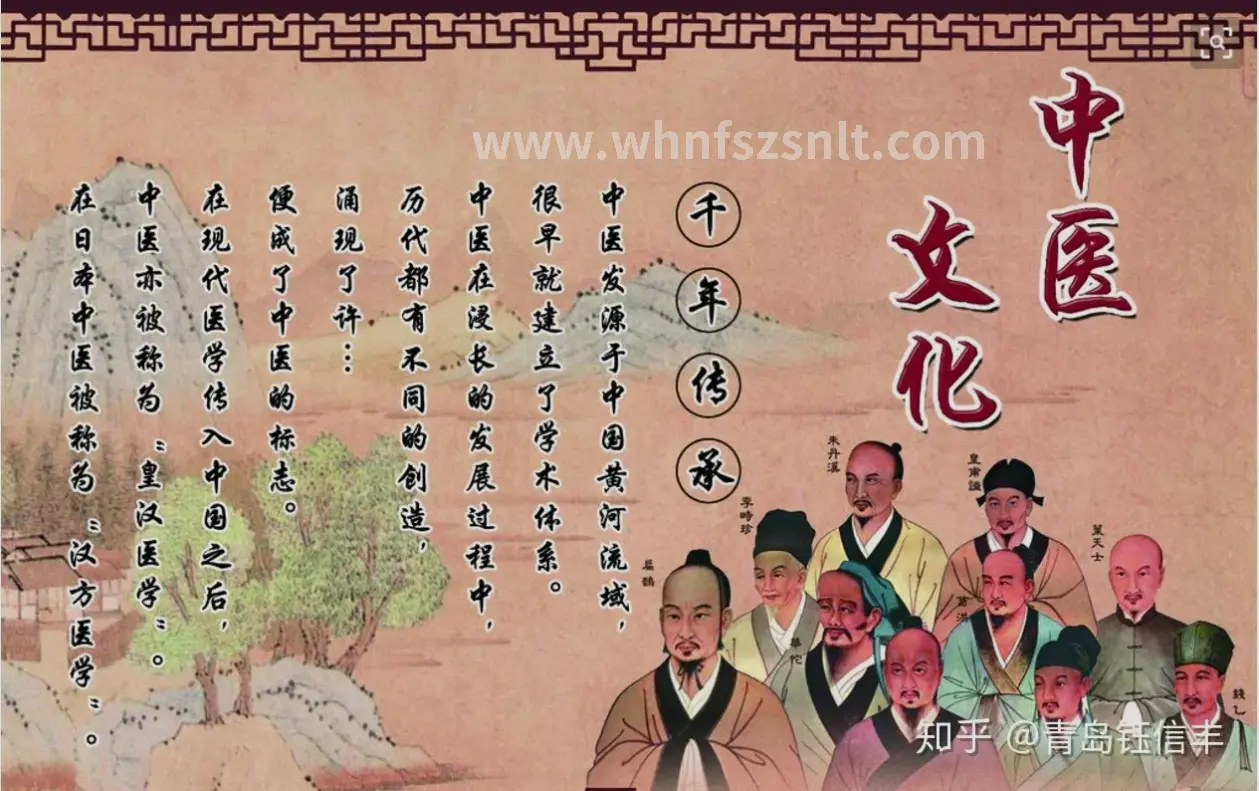 中医
文化
千年传承
中医发源于中国黄河流域，
很早就建立了学术体系。
中医在浸长的发展过程中，
历代都有不同的创造，
涌现了许…
便成了中医的标志。
在现代医学传入中国之后，
中医亦被称为“皇汉医学”。
在日本中医被称为“汉方医学”。
www.whnfszsnlt.com
朱丹溪
皇甫謐
李時珍
葉天士
扁鵲
葛洪
華佗
錢乙
知乎 @青岛钰信丰